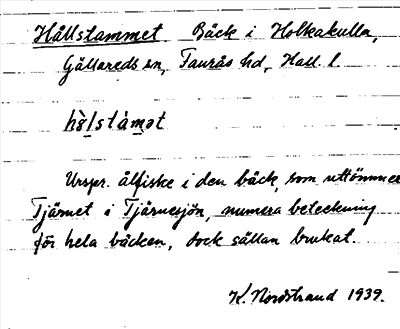 Hållstammet Bäck i Holkakulla,
Gällareds sn, Faurås hd, Hall. l.
hø̀lstàmət
Urspr. ålfiske i den bäck, som uttömmer
Tjärnet i Tjärnesjön, numera beteckning
för hela bäcken, dock sällan brukat.
K. Nordstrand 1939.